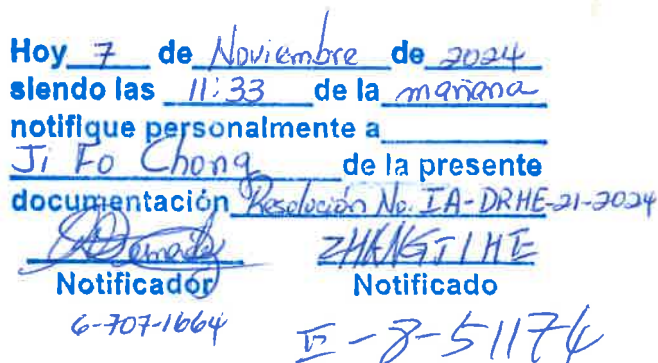 Hoy 7 de Noviembre de 2024
siendo las 11:33 de la mañana
notifique personalmente a
Ji Fo Chong de la presente
documentación Resolución No. IA-DRHE-21-2024
ZHANGJIHE
Notificador Notificado
6-707-1664 E-8-51174